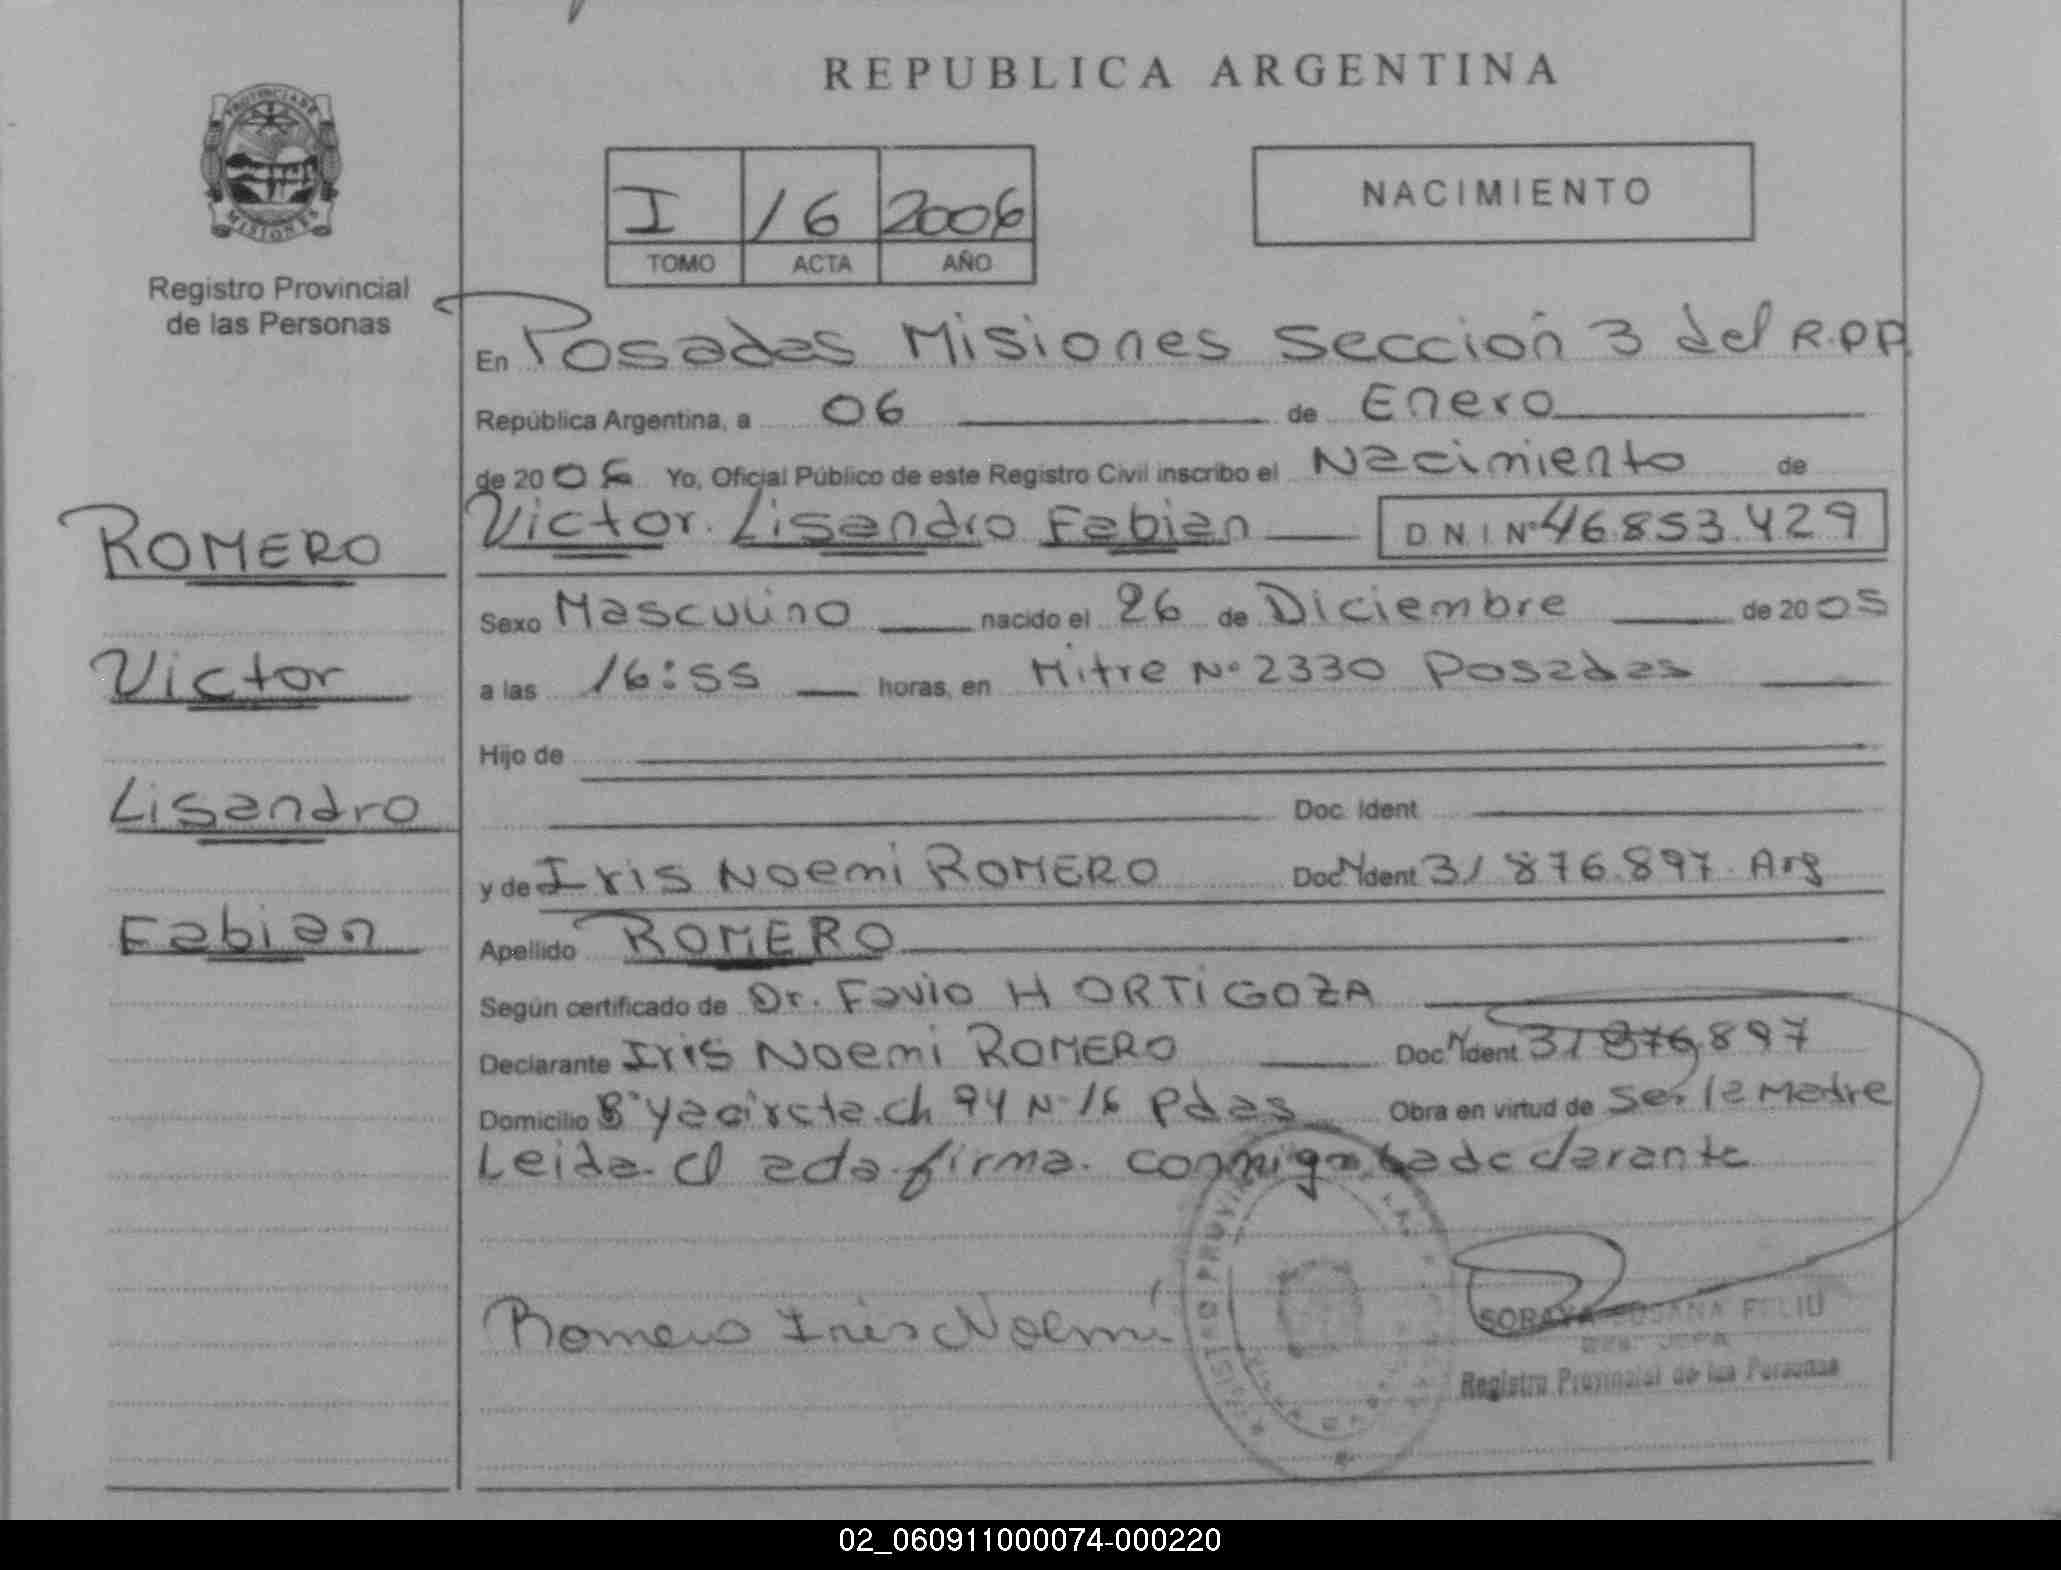 REPUBLICA ARGENTINA
PROVINCIA DE
MISIONES
Registro Provincial
de las Personas
I 16 2006
TOMO ACTA AÑO
NACIMIENTO
En Posadas Misiones Sección 3 del R.P.P.
República Argentina, a 06 de Enero
de 2006 Yo, Oficial Público de este Registro Civil inscribo el Nacimiento de
Victor Lisandro Fabian DNI Nº 46.853.429
ROMERO
Victor
Lisandro
Fabian
Sexo Masculino nacido el 26 de Diciembre de 2005
a las 16:55 horas, en Mitre Nº 2330 Posadas
Hijo de
Doc. Ident.
y de Iris Noemi ROMERO Doc N Ident 31 876.897. Arg
Apellido ROMERO
Según certificado de Dr. Favio H ORTIGOZA
Declarante Iris Noemi ROMERO Doc N Ident 31 876.897
Domicilio Bº Yacireta ch 94 Nº 16 Pdas Obra en virtud de Ser la Madre
Leida el acta firma conmigo la declarante
Romero Iris Noemí
SORAYA SUSANA FELIU
JEFA
Registro Provincial de las Personas
02_060911000074-000220